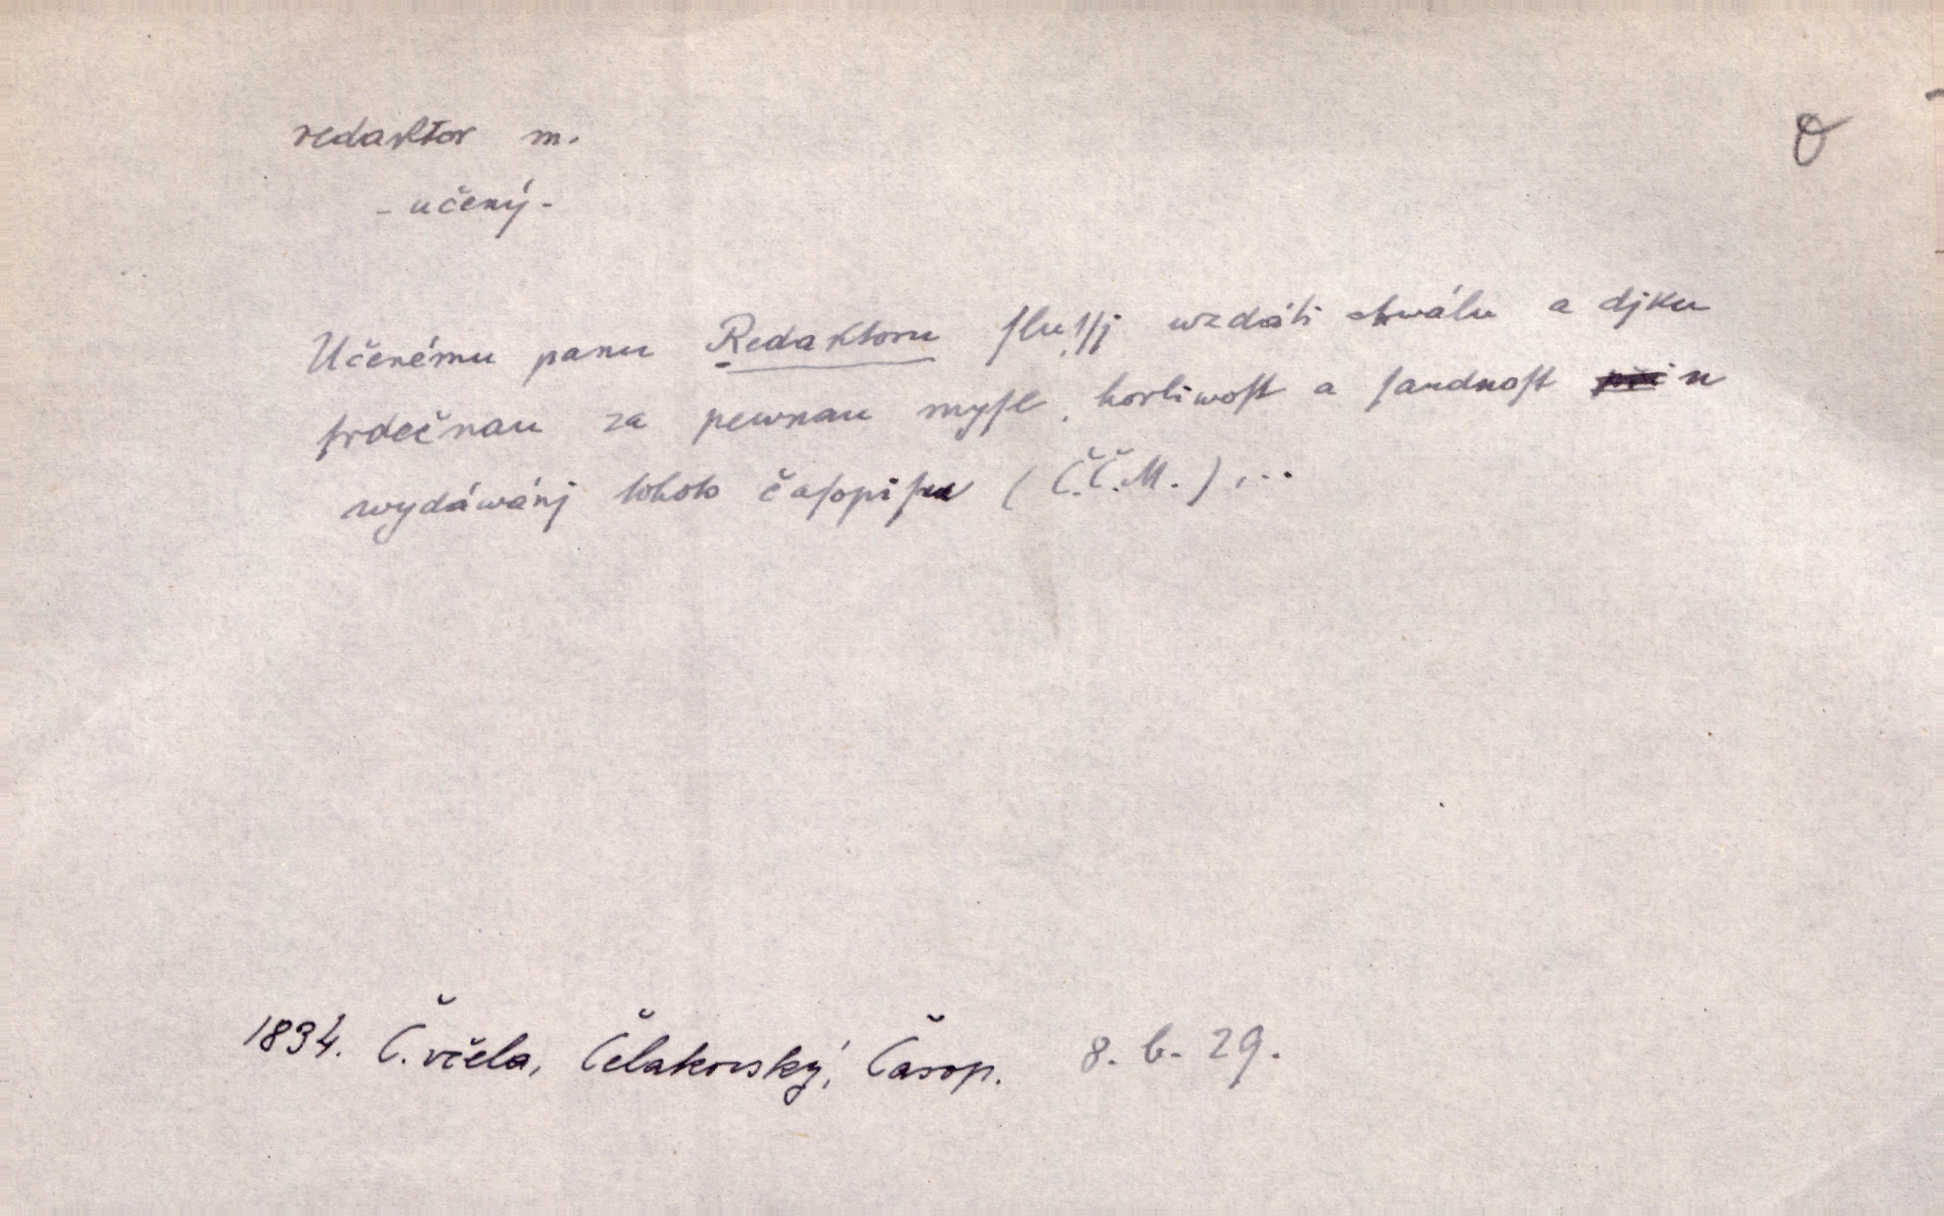 redaktor m. O
- učený -
Učenému panu Redaktoru ſluſſj wzdáti chwálu a djku
ſrdečnau za pewnau myſl, horliwoſt a ſaudnoſt w
wydáwánj tohoto čaſopiſu (Č.Č.M.)...
1834. Č. včela, Čelakovský, Časop. 8. b. 29.